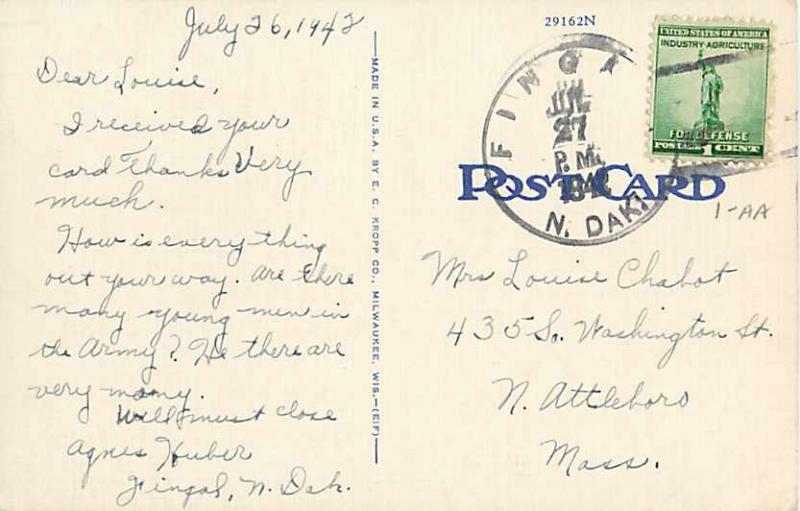 July 26, 1942
Dear Louise,
I received your
card Thanks Very
much.
How is everything
out your way. Are there
many young men in
the Army? He there are
very many.
Well must close
Agnes Huber
Fingal, N. Dak.
MADE IN U.S.A. BY E. C. KROPP CO., MILWAUKEE, WIS.—(EIF)
29162N
UNITED STATES OF AMERICA
INDUSTRY AGRICULTURE
FOR DEFENSE
POSTAGE 1 CENT
FINGA
27
P.M.
1942
N. DAK.
POST CARD
1-AA
Mrs Louise Chabot
435 So. Washington St.
N. Attleboro
Mass.